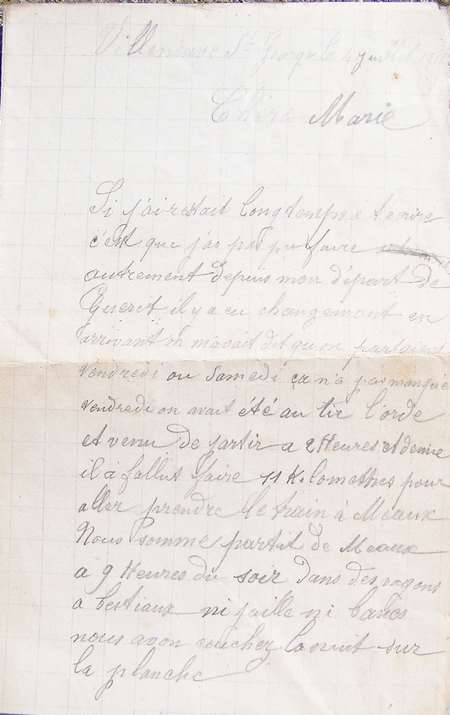 Villeneuve St George le 4 juillet
Chère Marie
Si j'ai restait longtemps a t'ecrire
c'est que j'ai pas pu faire
autrement depuis mon départ de
Gueret il y a eu changement en
arrivant on m'avait dit qu'on partaient
vendredi ou Samedi ça n'a pas manqué
vendredi on avait été au tir l'orde
et venu de partir a 2 Heures et demie
il a fallut faire 11 Kilomethes pour
aller prendre le train à Meaux
Nous somme partit de Meaux
a 9 Heures du soir dans des vagons
a bestiaux ni paille ni bancs
nous avon couchez la nuit sur
la planche